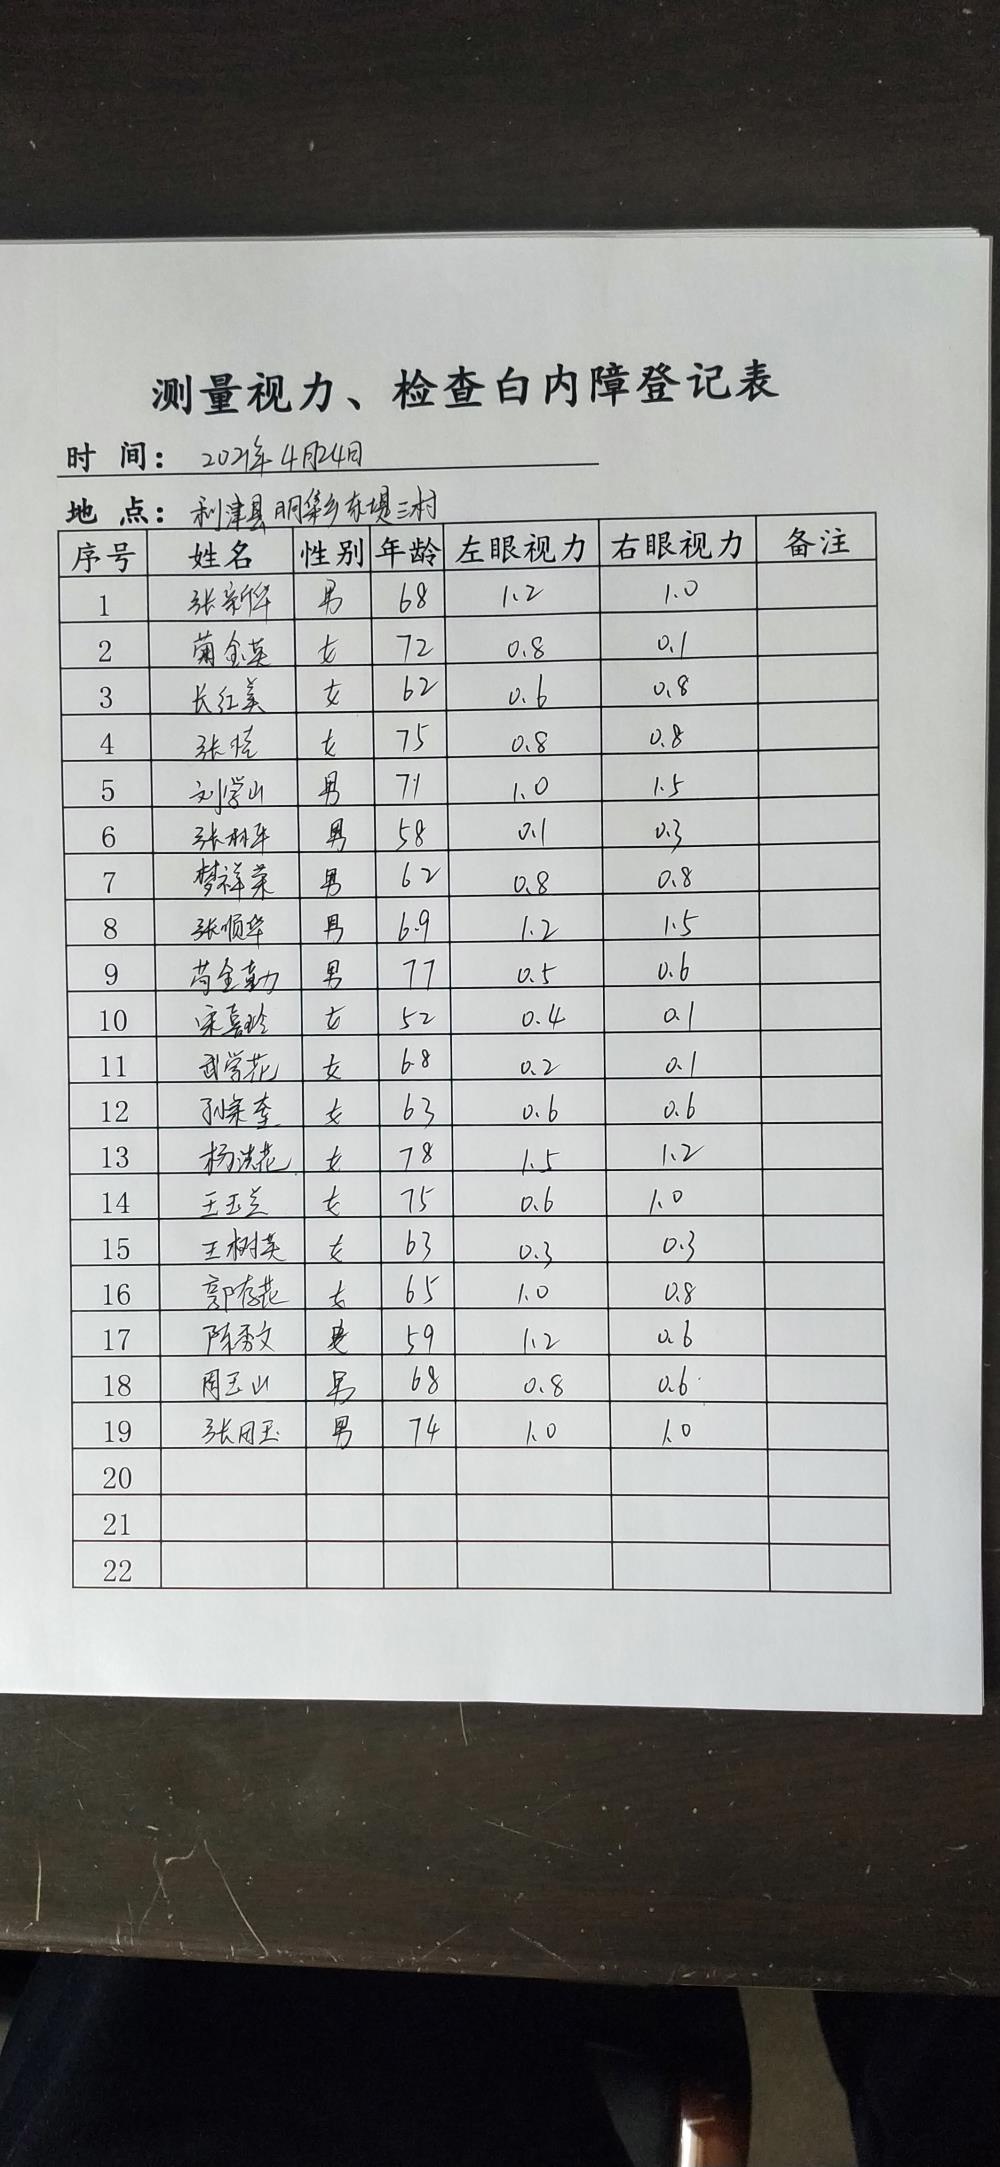 测量视力、检查白内障登记表
时 间： 2021年4月24日
地 点： 利津县明集乡东堤三村
序号 姓名 性别 年龄 左眼视力 右眼视力 备注
1 张新华 男 68 1.2 1.0
2 金英 女 72 0.8 0.1
3 长红美 女 62 0.6 0.8
4 张 女 75 0.8 0.8
5 刘学山 男 71 1.0 1.5
6 张林平 男 58 0.1 0.3
7 梦祥荣 男 62 0.8 0.8
8 张顺华 男 69 1.2 1.5
9 苟金勤 男 77 0.5 0.6
10 宋喜玲 女 52 0.4 0.1
11 武学花 女 68 0.2 0.1
12 孙 女 63 0.6 0.6
13 杨洪花 女 78 1.5 1.2
14 王玉兰 女 75 0.6 1.0
15 王树英 女 63 0.3 0.3
16 郭存花 女 65 1.0 0.8
17 陈秀文 59 1.2 0.6
18 周玉山 男 68 0.8 0.6
19 张同玉 男 74 1.0 1.0
20
21
22